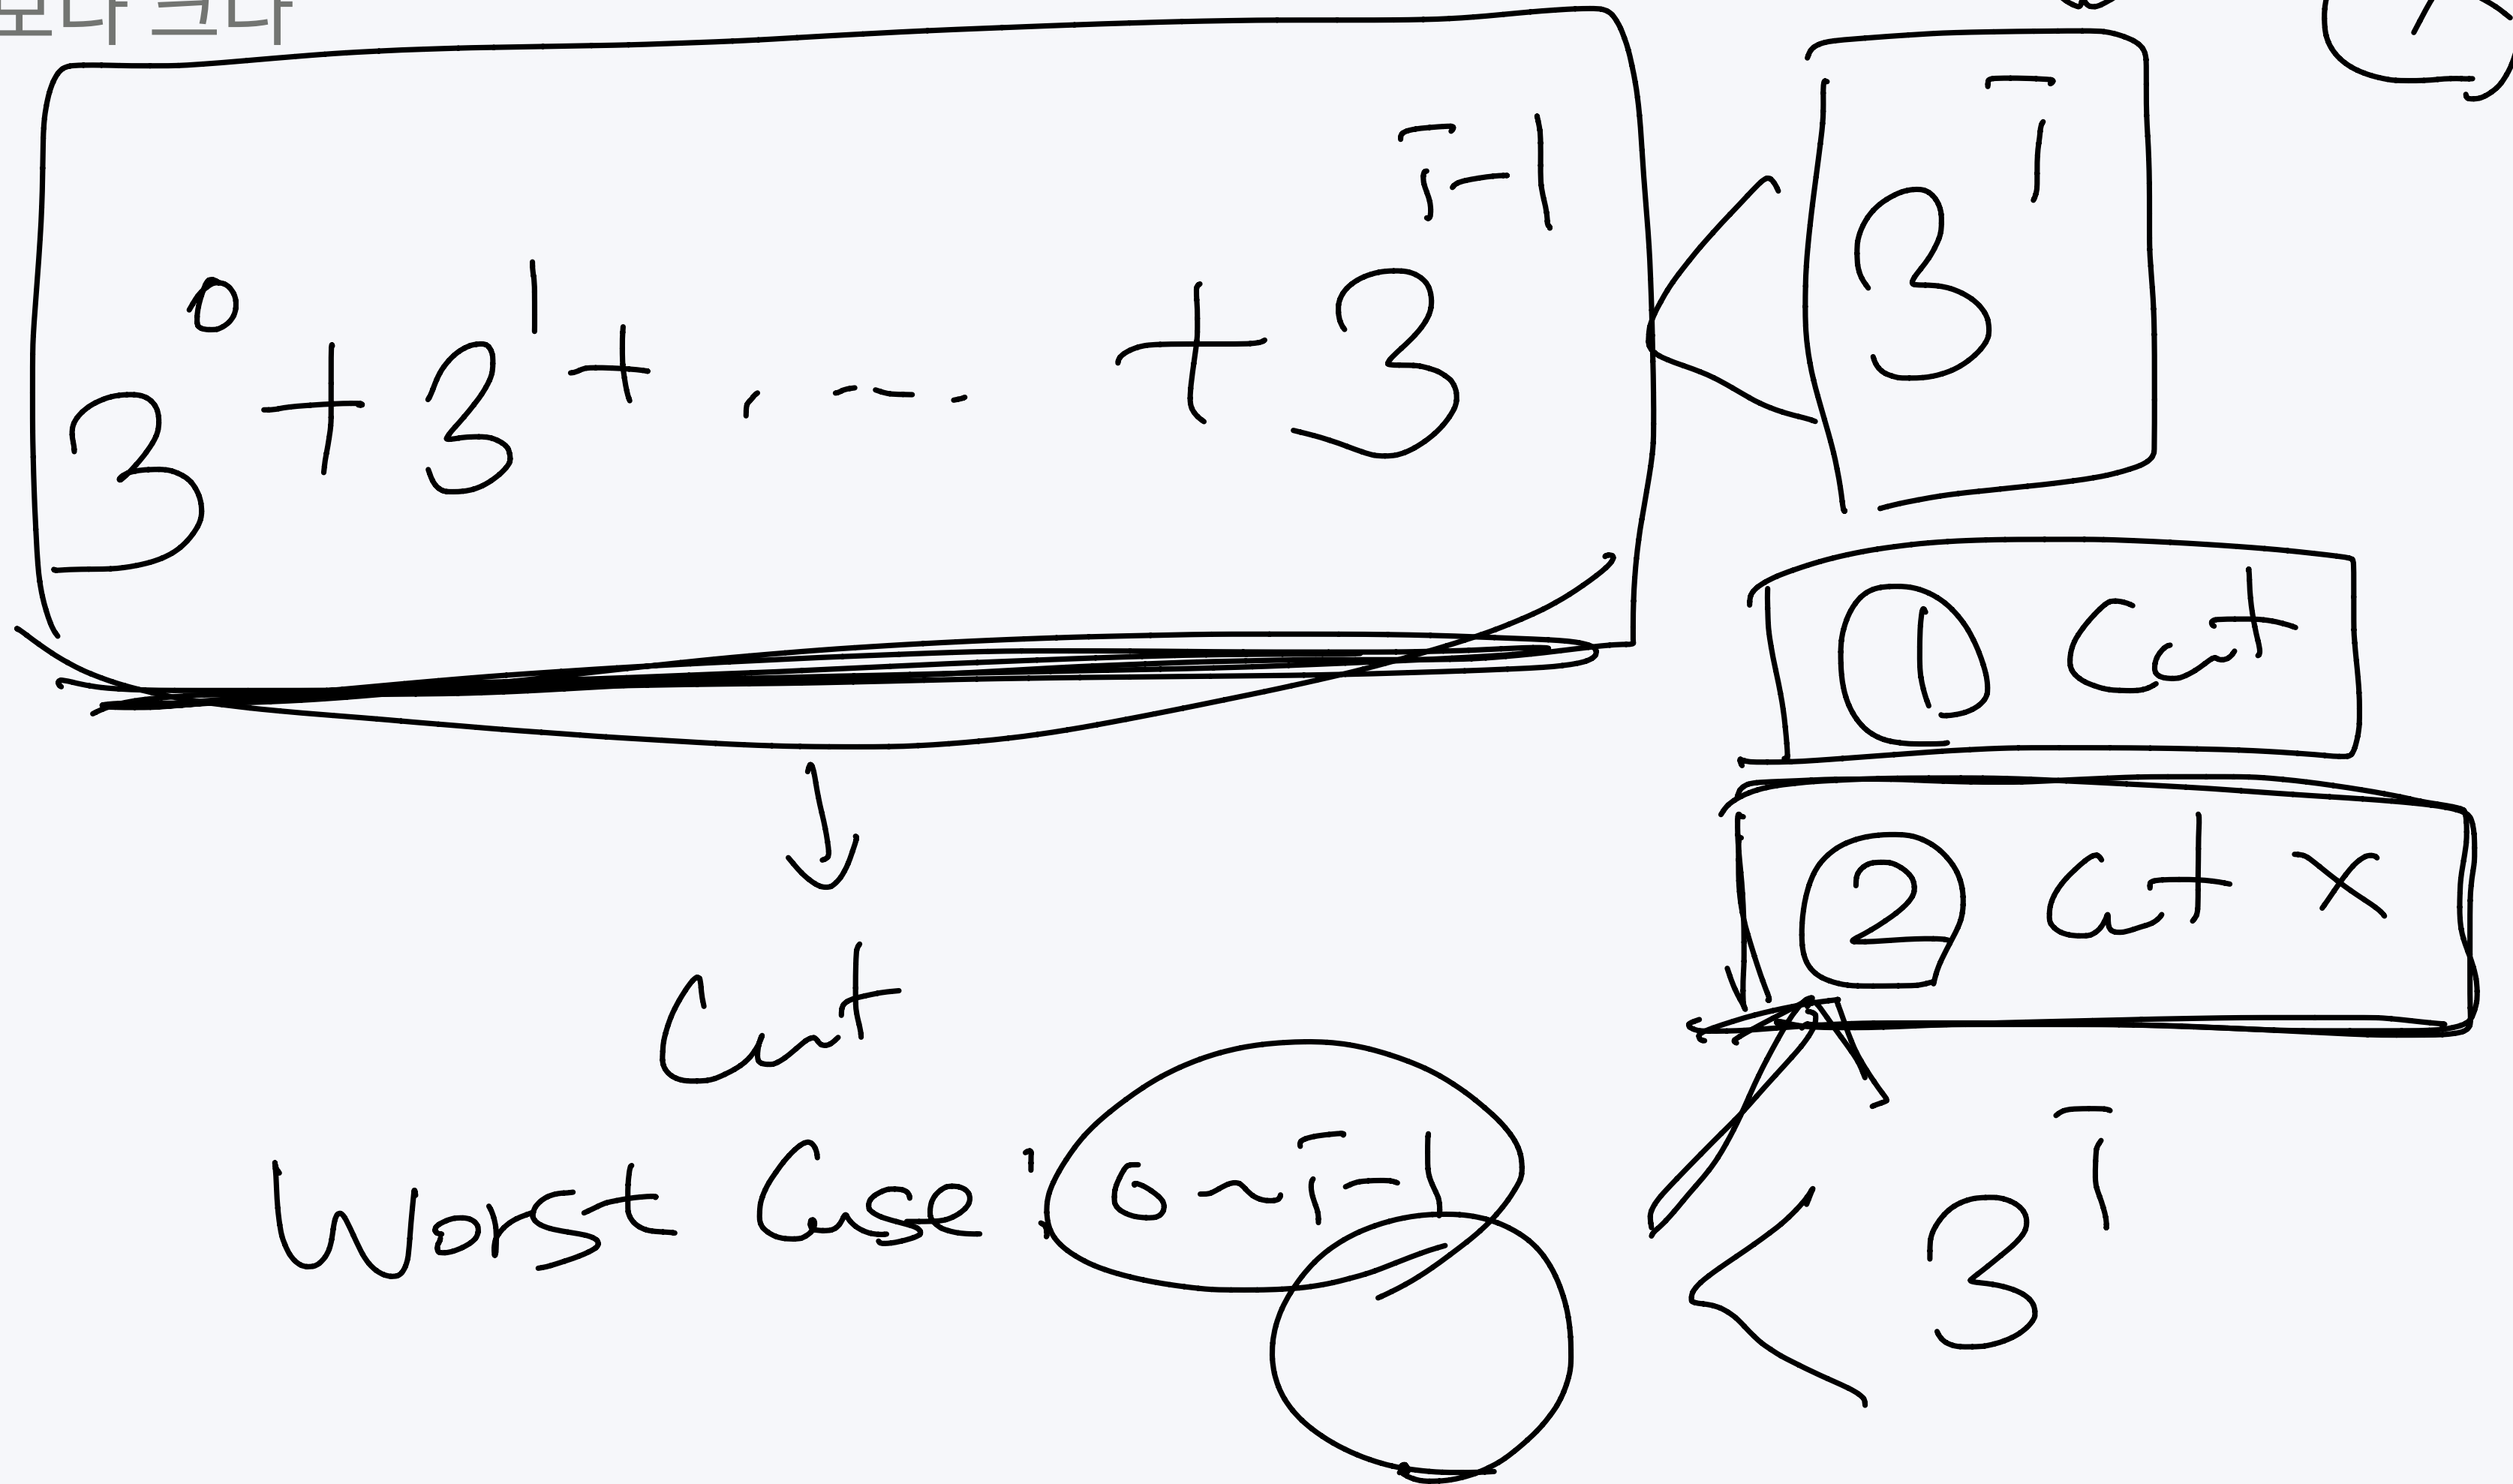 보다 크다
3⁰ + 3¹ + ..... + 3ⁱ⁻¹ < 3ⁱ
① Cut
② Cut X
Cut
Worst Case : 0 ~ i-1 < 3ⁱ